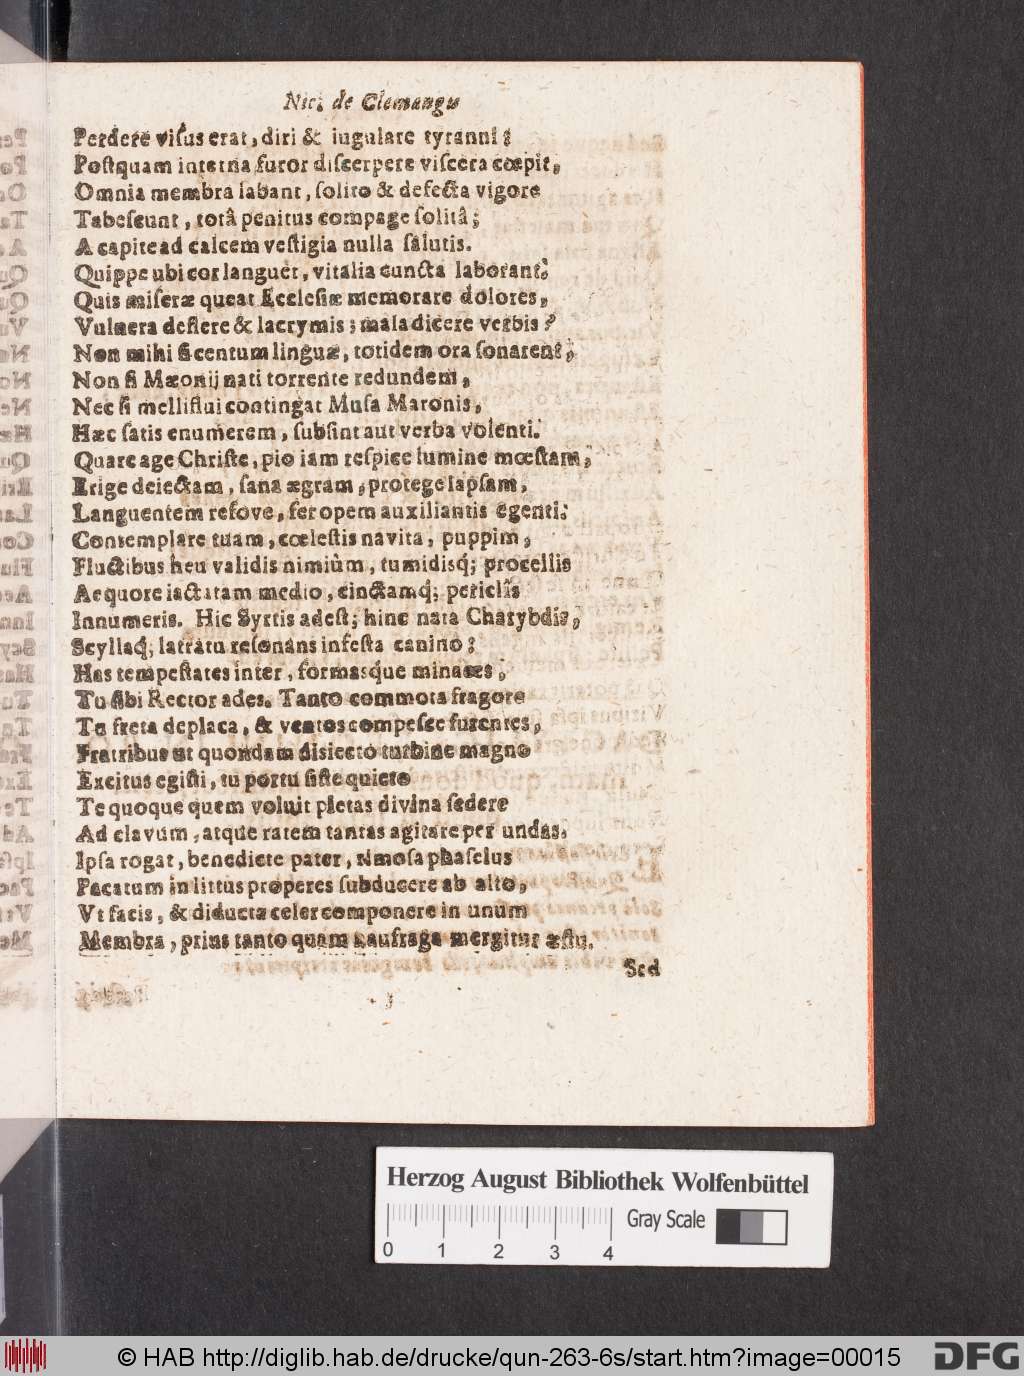 Nic. de Clemangu
Perdere visus erat, diri & iugulare tyranni;
Postquam interna furor discerpere viscera cœpit,
Omnia membra labant, solito & defecta vigore
Tabescunt, totâ penitus compage solitâ;
A capite ad calcem vestigia nulla salutis.
Quippe ubi cor languet, vitalia cuncta laborant.
Quis miseræ queat Ecclesiæ memorare dolores,
Vulnera deflere & lacrymis; mala dicere verbis?
Non mihi si centum linguæ, totidem ora sonarent,
Non si Mæonij nati torrente redundem,
Nec si melliflui contingat Musa Maronis,
Hæc satis enumerem, subsint aut verba volenti.
Quare age Christe, pio iam respice lumine mœstam,
Erige deiectam, sana ægram, protege lapsam,
Languentem refove, fer opem auxiliantis egenti.
Contemplare tuam, cœlestis navita, puppim,
Fluctibus heu validis nimiùm, tumidisq; procellis
Aequore iactatam medio, cinctamq; periclis
Innumeris. Hic Syrtis adest; hinc nata Charybdis,
Scyllaq; latratu resonans infesta canino;
Has tempestates inter, formasque minaces,
Tu sibi Rector ades. Tanto commota fragore
Tu freta deplaca, & ventos compesce furentes,
Fratribus ut quondam disiecto turbine magno
Excitus egisti, tu portu siste quieto
Te quoque quem voluit pietas divina sedere
Ad clavum, atque ratem tantas agitare per undas,
Ipsa rogat, benedicte pater, rimosa phaselus
Pacatum in littus properes subducere ab alto,
Vt facis, & diducta celer componere in unum
Membra, prius tanto quam naufraga mergitur æstu.
Sed
Herzog August Bibliothek Wolfenbüttel
Gray Scale
0 1 2 3 4
© HAB http://diglib.hab.de/drucke/qun-263-6s/start.htm?image=00015
DFG